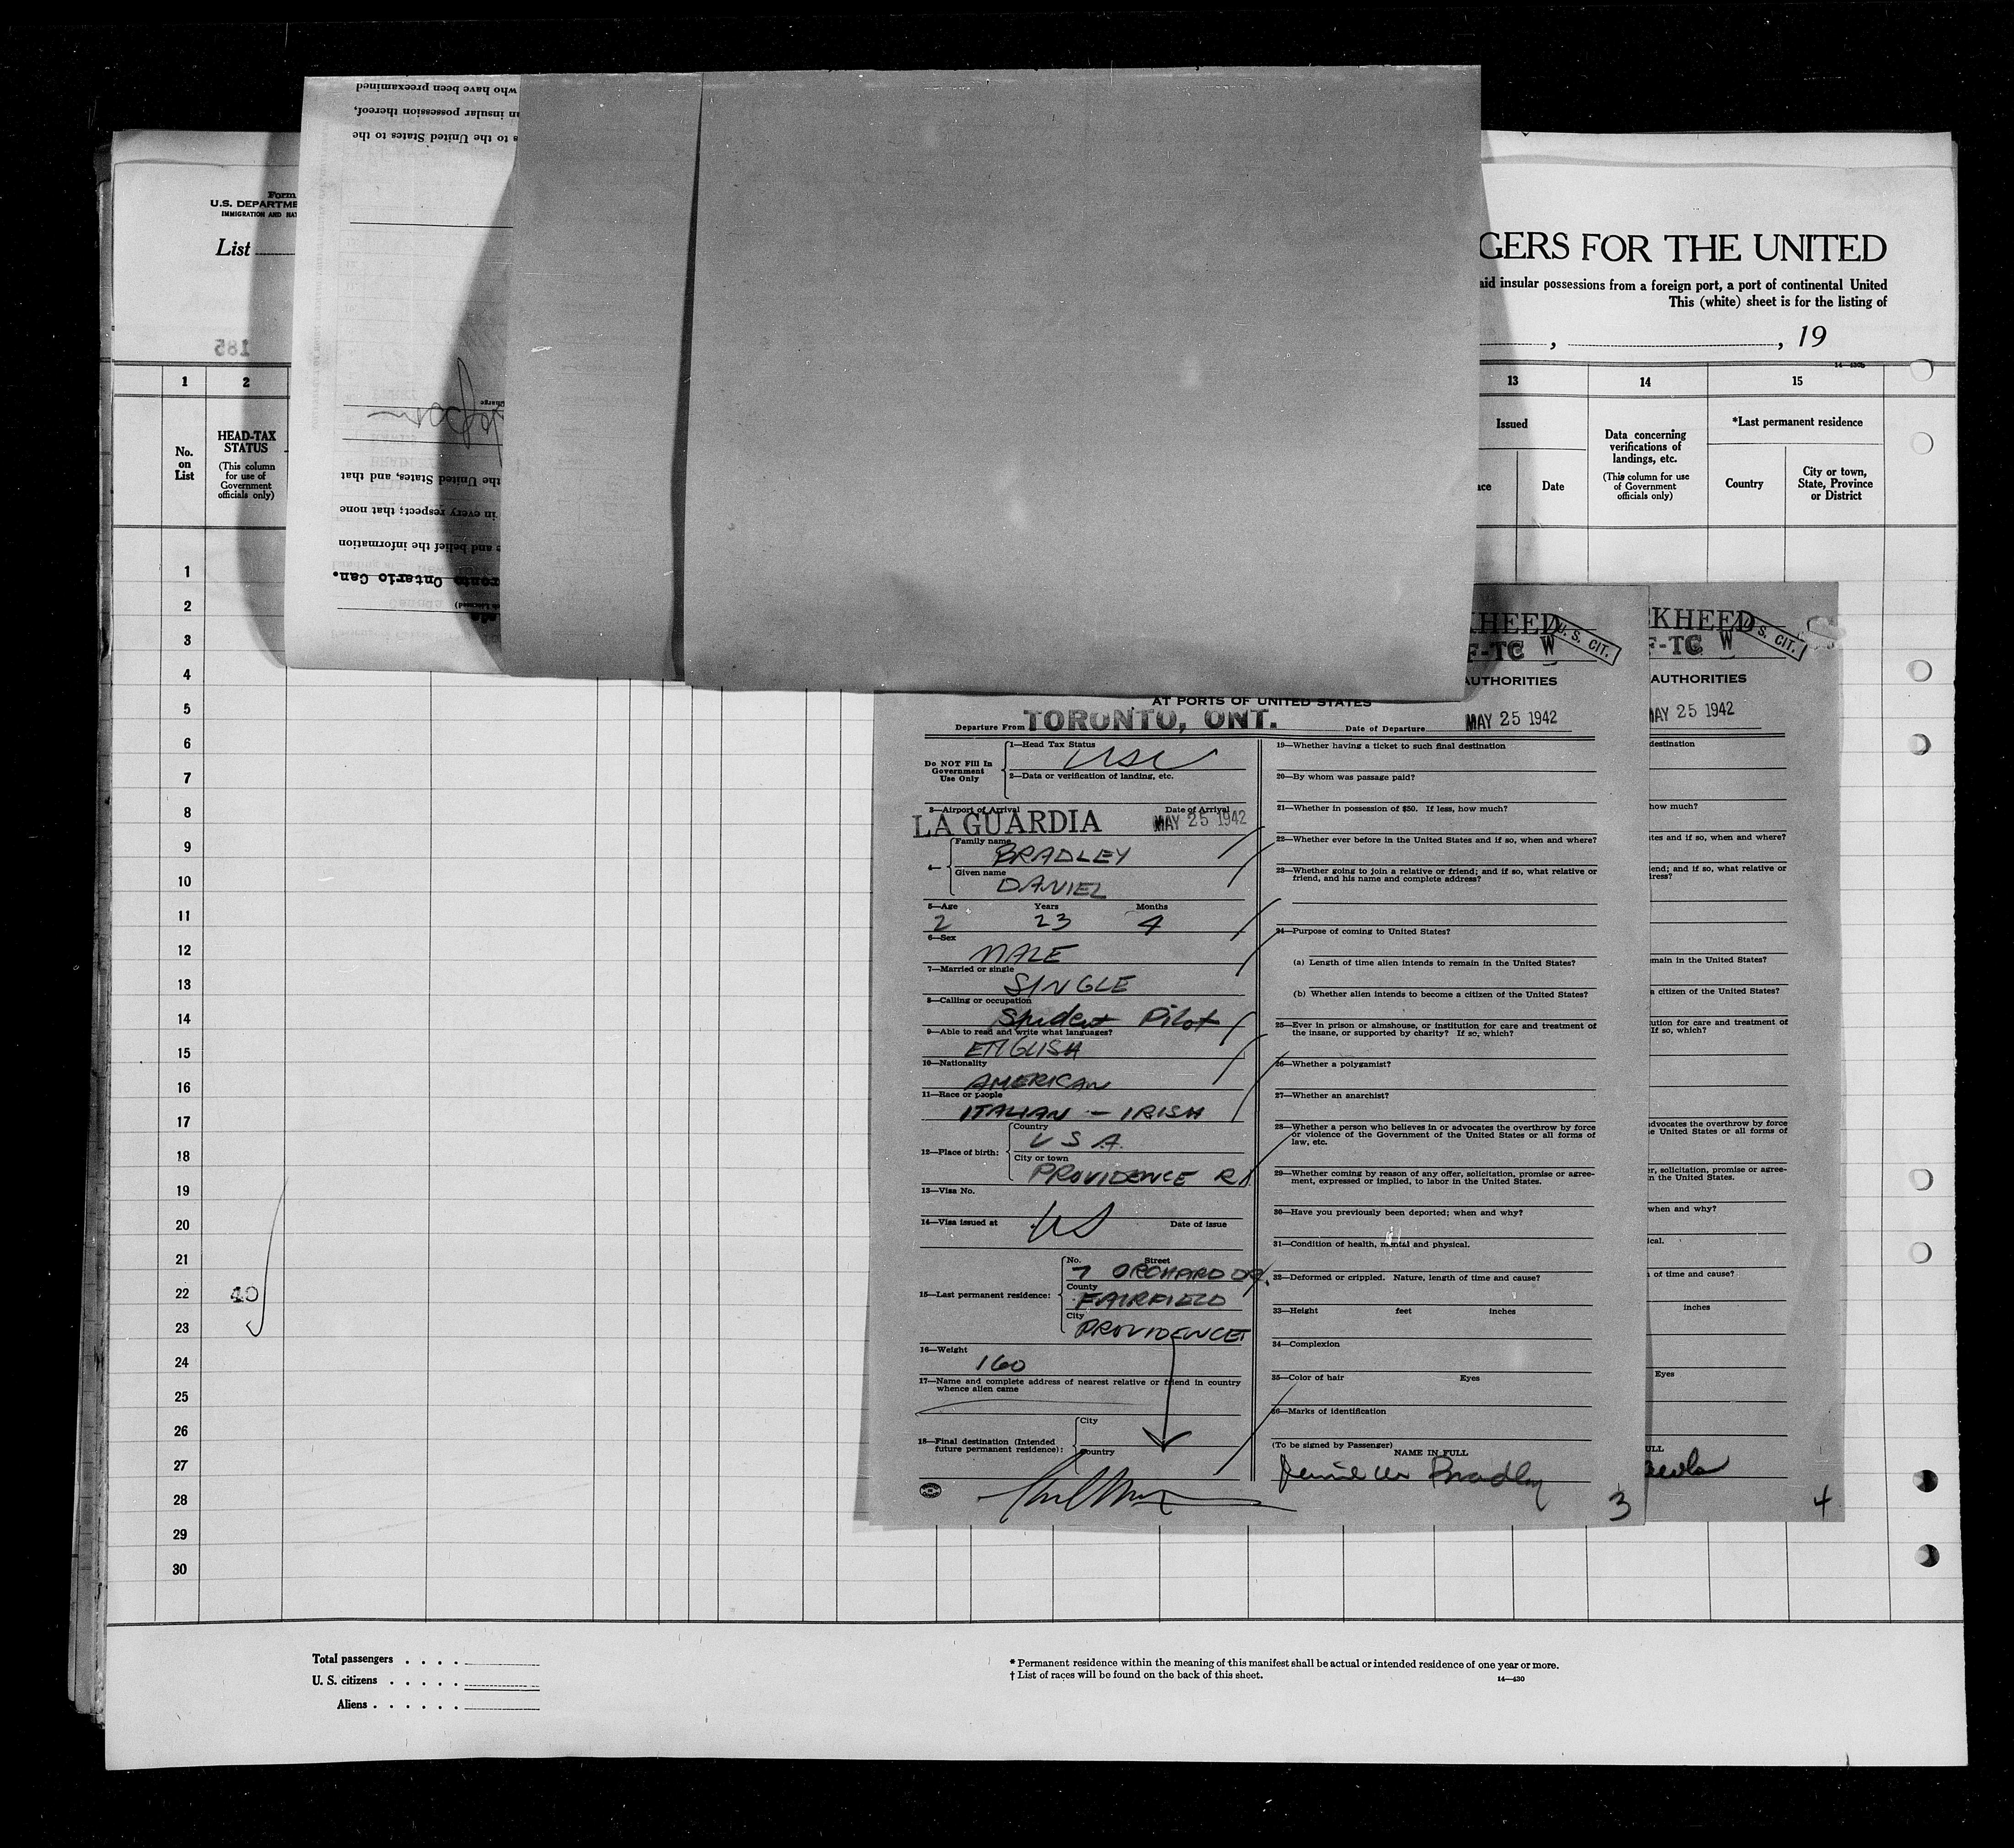 who have been preexamined
an insular possession thereof,
s to the United States to the
Form
U.S. DEPARTME
IMMIGRATION AND NA
List
GERS FOR THE UNITED
aid insular possessions from a foreign port, a port of continental United
This (white) sheet is for the listing of
, , 19
185
1 2 13 14 15
No. on List
HEAD-TAX STATUS
(This column for use of Government officials only)
Issued
ace Date
Data concerning verifications of landings, etc.
(This column for use of Government officials only)
*Last permanent residence
Country
City or town, State, Province or District
the United States, and that
in every respect; that none
e and belief the information
ronto Ontario Can.
1
2
3
4
5
6
7
8
9
10
11
12
13
14
15
16
17
18
19
20
21
22
23
24
25
26
27
28
29
30
40
KHEED
U. S. CIT.
F-TC W
AUTHORITIES
AT PORTS OF UNITED STATES
Departure From TORONTO, ONT. Date of Departure MAY 25 1942
Do NOT Fill In Government Use Only
1—Head Tax Status USC
2—Data or verification of landing, etc.
3—Airport of Arrival Date of Arrival
LA GUARDIA MAY 25 1942
4— Family name BRADLEY
Given name DANIEL
5—Age Years Months
2 23 4
6—Sex
MALE
7—Married or single
SINGLE
8—Calling or occupation
Student Pilot
9—Able to read and write what languages?
ENGLISH
10—Nationality
AMERICAN
11—Race or people
ITALIAN - IRISH
12—Place of birth: Country
U S A.
City or town
PROVIDENCE RI
13—Visa No.
14—Visa issued at US Date of issue
15—Last permanent residence: No. Street
7 ORCHARD DR.
County
FAIRFIELD
City
PROVIDENCE
16—Weight
160
17—Name and complete address of nearest relative or friend in country whence alien came
18—Final destination (Intended future permanent residence): City
Country
19—Whether having a ticket to such final destination
20—By whom was passage paid?
21—Whether in possession of $50. If less, how much?
22—Whether ever before in the United States and if so, when and where?
23—Whether going to join a relative or friend; and if so, what relative or
friend, and his name and complete address?
24—Purpose of coming to United States?
(a) Length of time alien intends to remain in the United States?
(b) Whether alien intends to become a citizen of the United States?
25—Ever in prison or almshouse, or institution for care and treatment of
the insane, or supported by charity? If so, which?
26—Whether a polygamist?
27—Whether an anarchist?
28—Whether a person who believes in or advocates the overthrow by force
or violence of the Government of the United States or all forms of
law, etc.
29—Whether coming by reason of any offer, solicitation, promise or agree-
ment, expressed or implied, to labor in the United States.
30—Have you previously been deported; when and why?
31—Condition of health, mental and physical.
32—Deformed or crippled. Nature, length of time and cause?
33—Height feet inches
34—Complexion
35—Color of hair Eyes
36—Marks of identification
(To be signed by Passenger) NAME IN FULL
Bradley
3
KHEED
U. S. CIT.
F-TC W
AUTHORITIES
MAY 25 1942
destination
how much?
tes and if so, when and where?
end; and if so, what relative or
ress?
main in the United States?
a citizen of the United States?
ution for care and treatment of
If so, which?
dvocates the overthrow by force
e United States or all forms of
r, solicitation, promise or agree-
n the United States.
when and why?
ical.
of time and cause?
inches
Eyes
ULL
4
Total passengers . . . .
U. S. citizens . . . . .
Aliens . . . . . .
* Permanent residence within the meaning of this manifest shall be actual or intended residence of one year or more.
† List of races will be found on the back of this sheet.
14—430